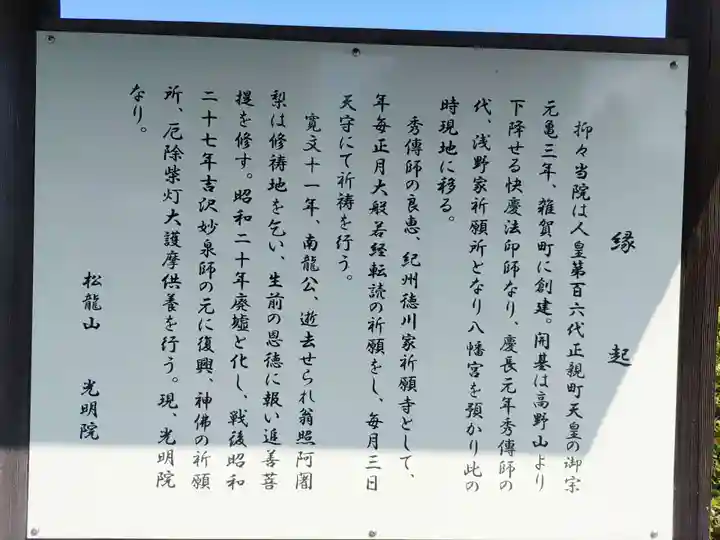 縁起
抑々当院は人皇第百六代正親町天皇の御宗
元亀三年、雑賀町に創建。開基は高野山より
下降せる快慶法印師なり、慶長元年秀傳師の
代、浅野家祈願所となり八幡宮を預かり此の
時現地に移る。
秀傳師の良恵、紀州徳川家祈願寺として、
年毎正月大般若経転読の祈願をし、毎月三日
天守にて祈祷を行う。
寛文十一年、南龍公、逝去せられ翁照阿闍
梨は修祷地を乞い、生前の恩徳に報い追善菩
提を修す。昭和二十年廃墟と化し、戦後昭和
二十七年吉沢妙泉師の元に復興、神佛の祈願
所、厄除柴灯大護摩供養を行う。現、光明院
なり。
松龍山 光明院